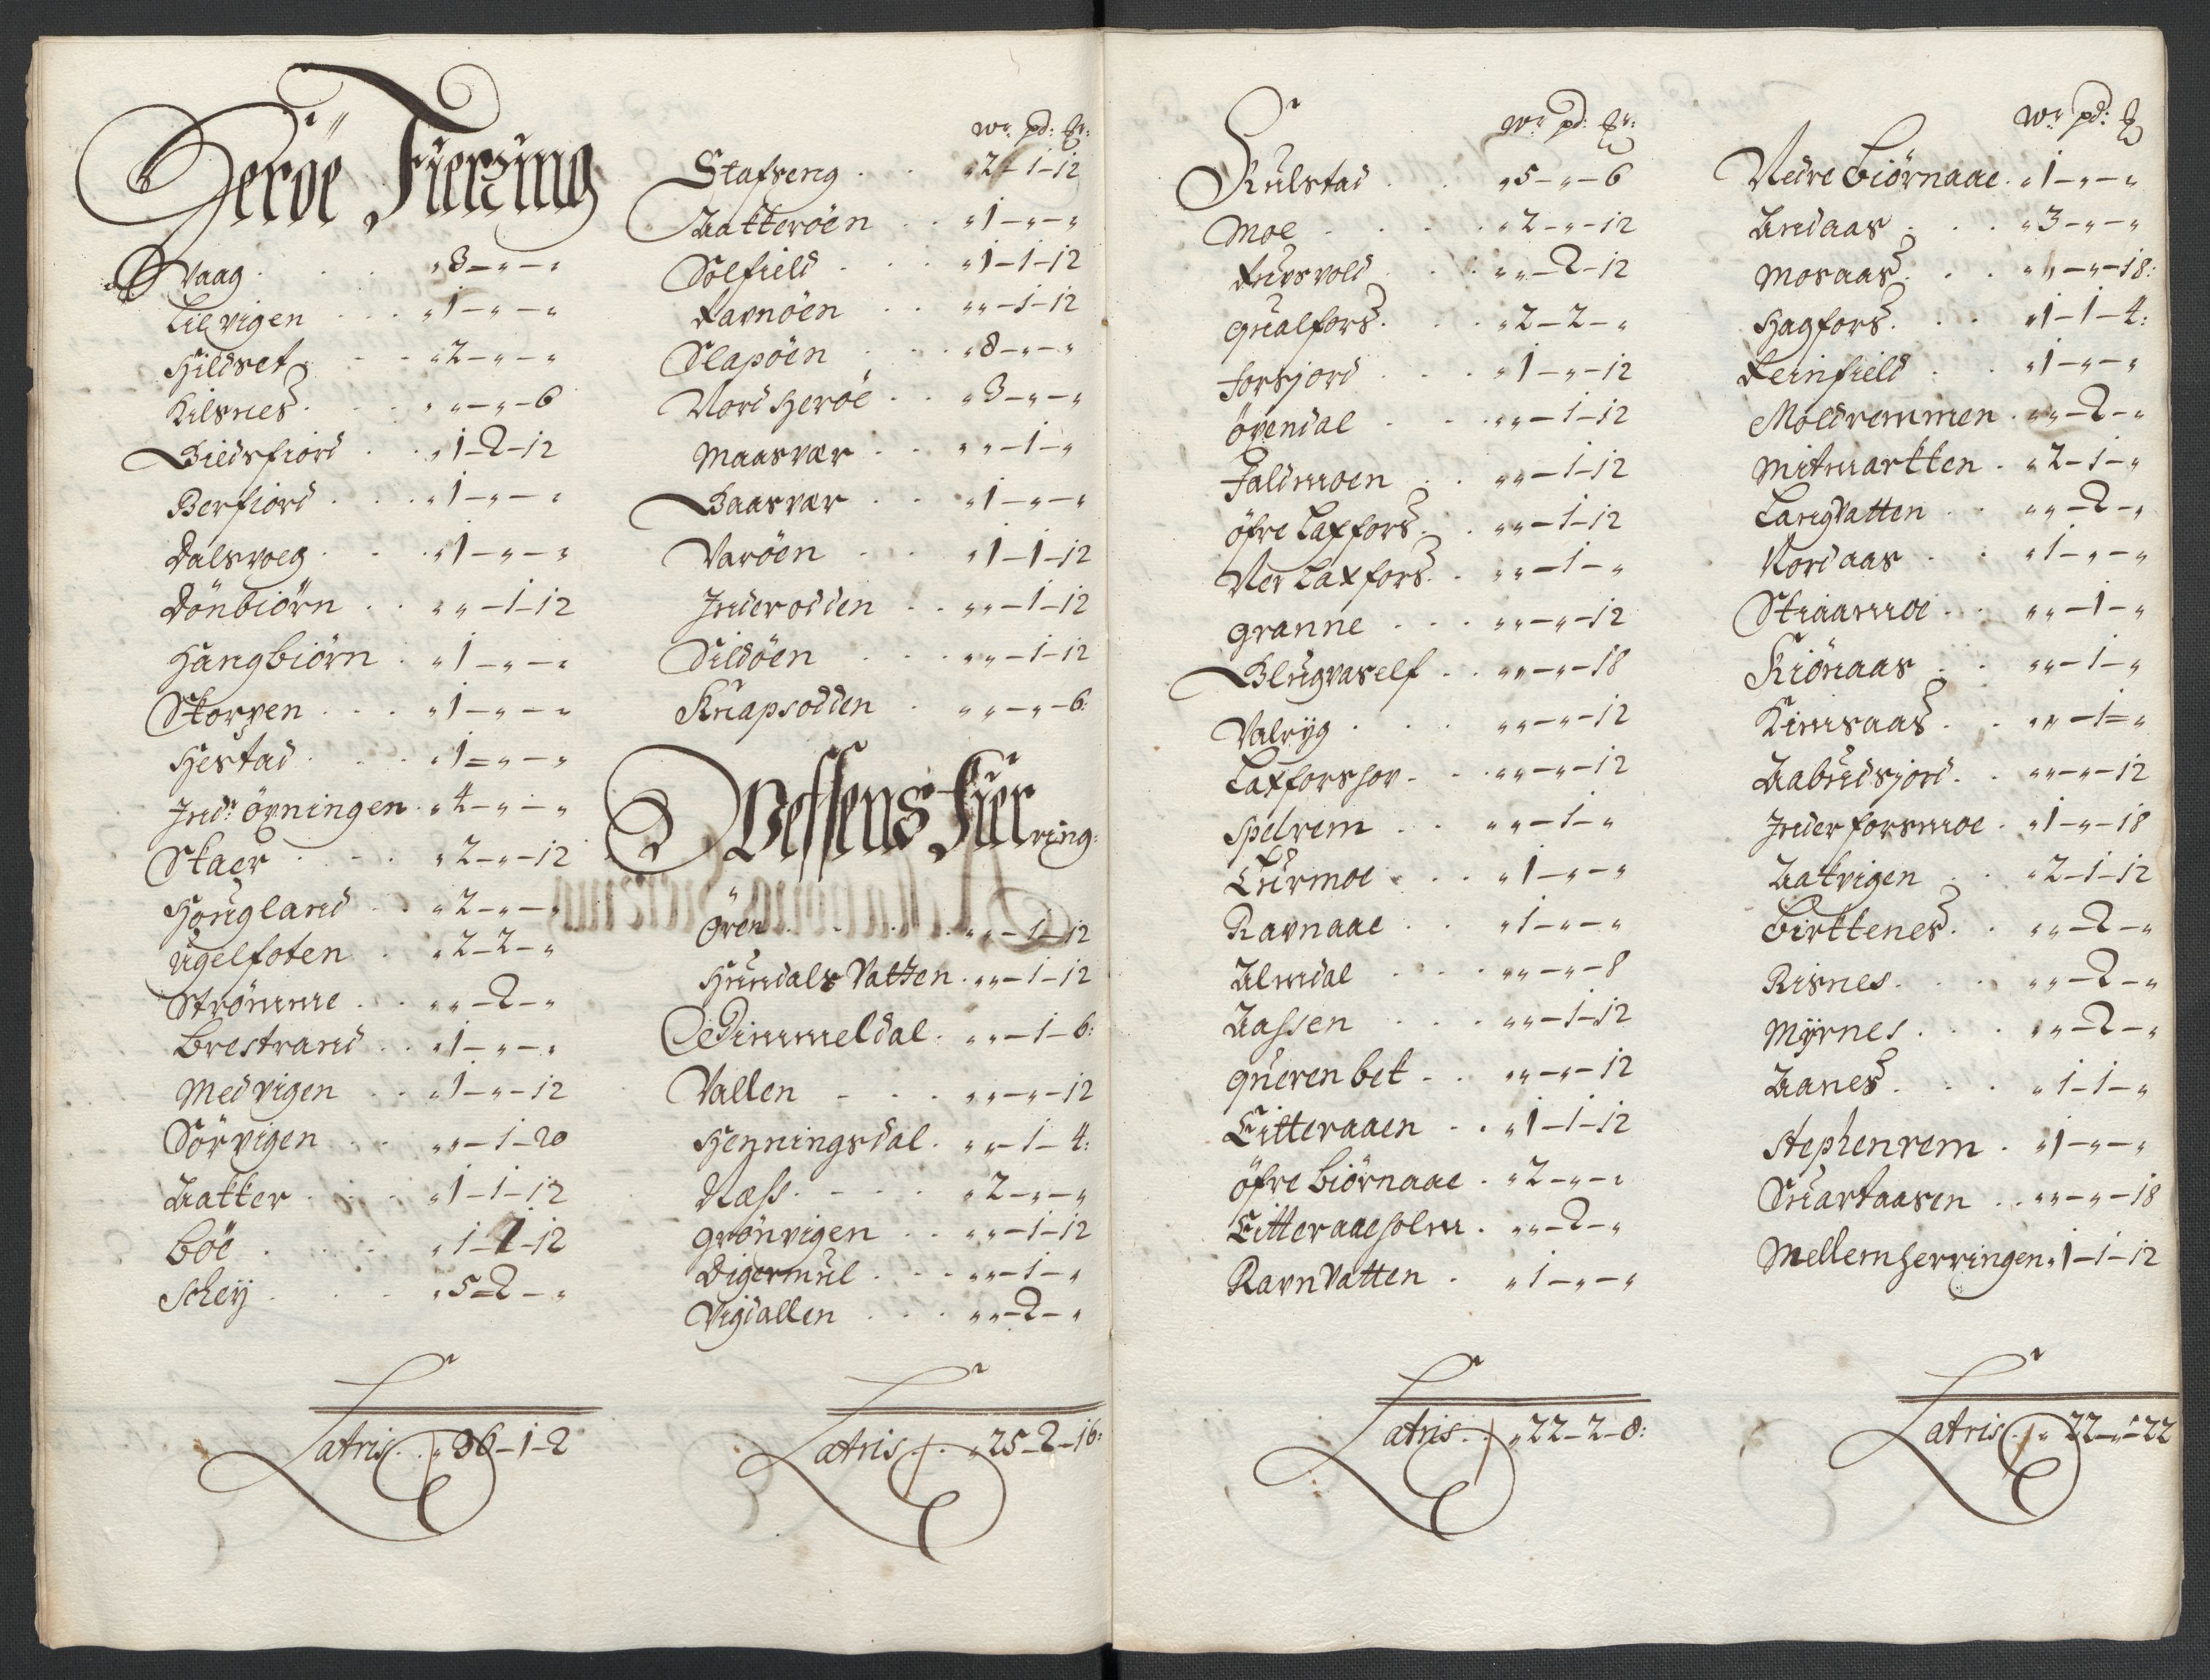 Herøe Fierzing
Vaag . . . „ 3 – „ – „
Lilvigen . . . „ 1 – „ – „
Hildset . . „ 2 – „ – „
Kilsnes . . „ „ – „ – 6
Biedsfiord . . „ 1 – 2 – 12
Berfiord . . . „ 1 – „ – „
Dalsvoeg . . . „ 1 – „ – „
Dönbiörn . . „ „ – 1 – 12
Hangbiörn . „ 1 – „ – „
Skorven . . . „ 1 – „ – „
Hestad . . . „ 1 – „ – „
Indr övningen . „ 4 – „ – „
Skaer . . . „ 2 – „ – 12
Hougland . . „ 2 – „ – „
Ugelfoten . „ 2 – 2 – „
Strömme . . „ „ – 2 – „
Brestrand . . „ 1 – „ – „
Medvigen . . „ 1 – „ – 12
Sörvigen . . „ „ – 1 – 20
Aakker . . . „ 1 – 1 – 12
Böe . . . „ 1 – 1 – 12
Schey . . . „ 5 – 2 – „
Latris . . „ 36 – 1 – 2
Wr pd: Mr:
Stafseng . . „ 2 – 1 – 12
Aakkeröen . . „ 1 – „ – „
Solfield . . . „ 1 – 1 – 12
Ravnöen . . „ „ – 1 – 12
Slapöen . . . „ 8 – „ – „
Nord Heröe . . „ 3 – „ – „
Maasvær . . „ „ – 1 – „
Baasvær . . „ 1 – „ – „
Varöen . . „ 1 – 1 – 12
Inderodden . . „ „ – 1 – 12
Sildöen . . . „ „ – 1 – 12
Knapsodden . „ „ – „ – 6:
Vefsens Fierring:
Ören . . . . „ „ – 1 – 12
Hundals Vatten . „ „ – 1 – 12
Dimmeldal . „ „ – 1 – 6:
Vallen – . . „ „ – „ – 12
Henningsdal . „ „ – 1 – 4:
Næss . – . . „ 2 – „ – „
Grönvigen . . „ „ – 1 – 12
Digermul . . . „ „ – 1 – „
Vigdallen . . . „ „ – 2 – „
Latris . . „ 25 – 2 – 16:
Wr pd: Mr:
Kulstad . . „ 5 – „ – 6
Moe . . . . „ 2 – „ – 12
Fusvold . . . „ „ – 2 – 12
Qualfors . . . „ 2 – 2 – „
Forsjord . . . „ 1 – „ – 12
Övendal . . . „ „ – 1 – 12
Faldmoen . . „ „ – 1 – 12
Öfre Laxfors . . „ „ – 1 – 12
Ner Laxfors . . „ „ – 1 – „
Granne . . . „ „ – „ – 12
Blugvaself . . „ „ – „ – 18
Valryg . . . „ „ – „ – 12
Laxforshov . . „ „ – „ – 12
Spelrem . . „ „ – 1 – „
Turmoe . . . „ 1 – „ – „
Ravnaae . . „ 1 – „ – „
Almdal . . . „ „ – „ – 8
Aassen . . . „ „ – 1 – 12
Querenbet . . „ „ – „ – 12
Eitteraaen . . „ 1 – 1 – 12
Öfre Biörnaae . „ 2 – „ – „
Eitteraaeholm . „ „ – 2 – „
RavnVatten . „ 1 – „ – „
Latris . . „ 22 – 2 – 8:
Wr pd: Mr
Nedre Biörnaae . „ 1 – „ – „
Andaas . . . „ 3 – „ – „
Mosaas . . . „ „ – „ – 18:
Hagfors . . . „ 1 – 1 – 4:
Reinfield . . „ 1 – „ – „
Moldremmen . „ „ – 2 – „
Mitmarkken . „ 2 – 1 – „
LangVatten . . „ „ – 2 – „
Nordaas . . „ 1 – „ – „
Stuaamoe . . „ „ – 1 – „
Kiönaas . . „ „ – 1 – „
Kimsaas . . „ „ – 1 – „
Aabudsjord . . „ „ – „ – 12
Inderforsmoe . „ 1 – „ – 18
Aakvigen . . „ 2 – 1 – 12
Birkkenes . . „ „ – 2 – „
Risnes . . . „ „ – 2 – „
Myrnes . . . „ „ – 2 – „
Aanes . . . „ 1 – 1 – „
Stephenrem . „ 1 – „ – „
Suartaasen . . „ „ – „ – 18
Mellemherringen „ 1 – 1 – 12
Latris . . „ 22 – „ – 22